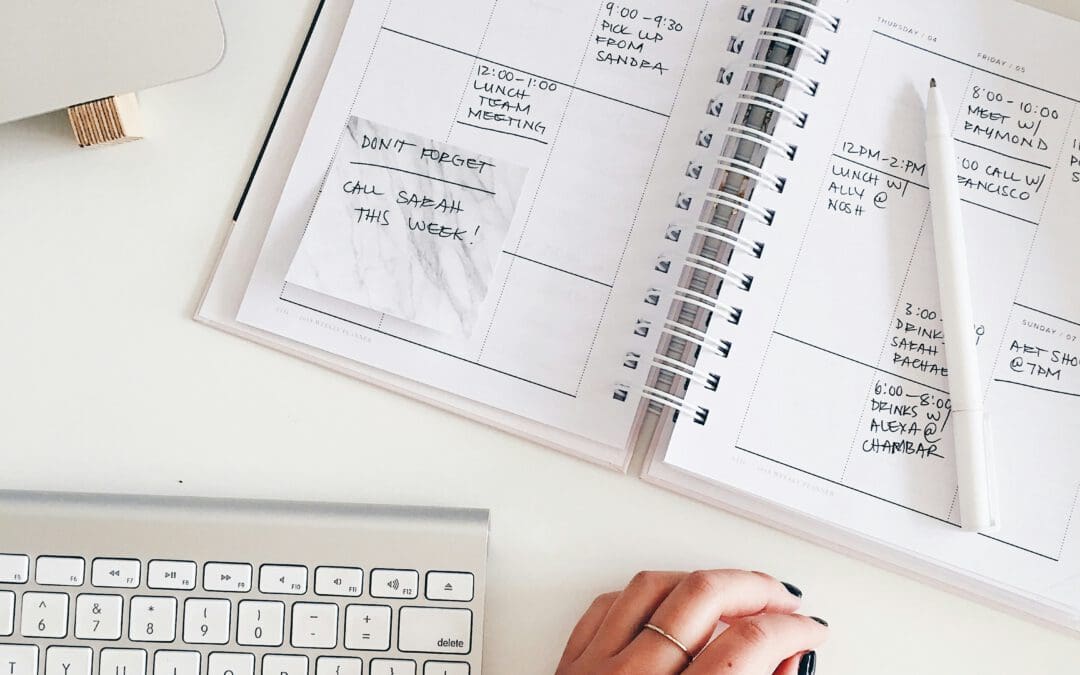 9:00 - 9:30
PICK UP
FROM
SANDRA
12:00-1:00
LUNCH
TEAM
MEETING
DON'T FORGET
CALL SARAH
THIS WEEK!
WEEKLY PLANNER
THURSDAY / 04
12PM-2PM
LUNCH W/
ALLY @
NOSH
FRIDAY / 05
8:00 - 10:00
MEET W/
RAYMOND
:00 CALL W/
3:00-
DRINK
SARAH
RACHAE
6:00-8:00
DRINKS W/
ALEXA @
CHAMBAR
SUNDAY / 07
ART SHO
@ 7PM
WEEKLY PLANNER
F5
F6
F7
F8
F9
F10
F11
F12
^
6
&
7
*
8
(
9
)
0
-
+
=
delete
T
Y
U
I
O
P
{
}